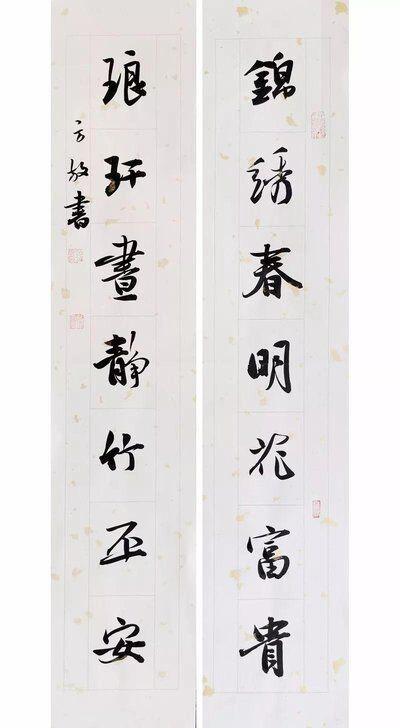 錦綉春明花富貴
琅玕晝靜竹平安
方 書